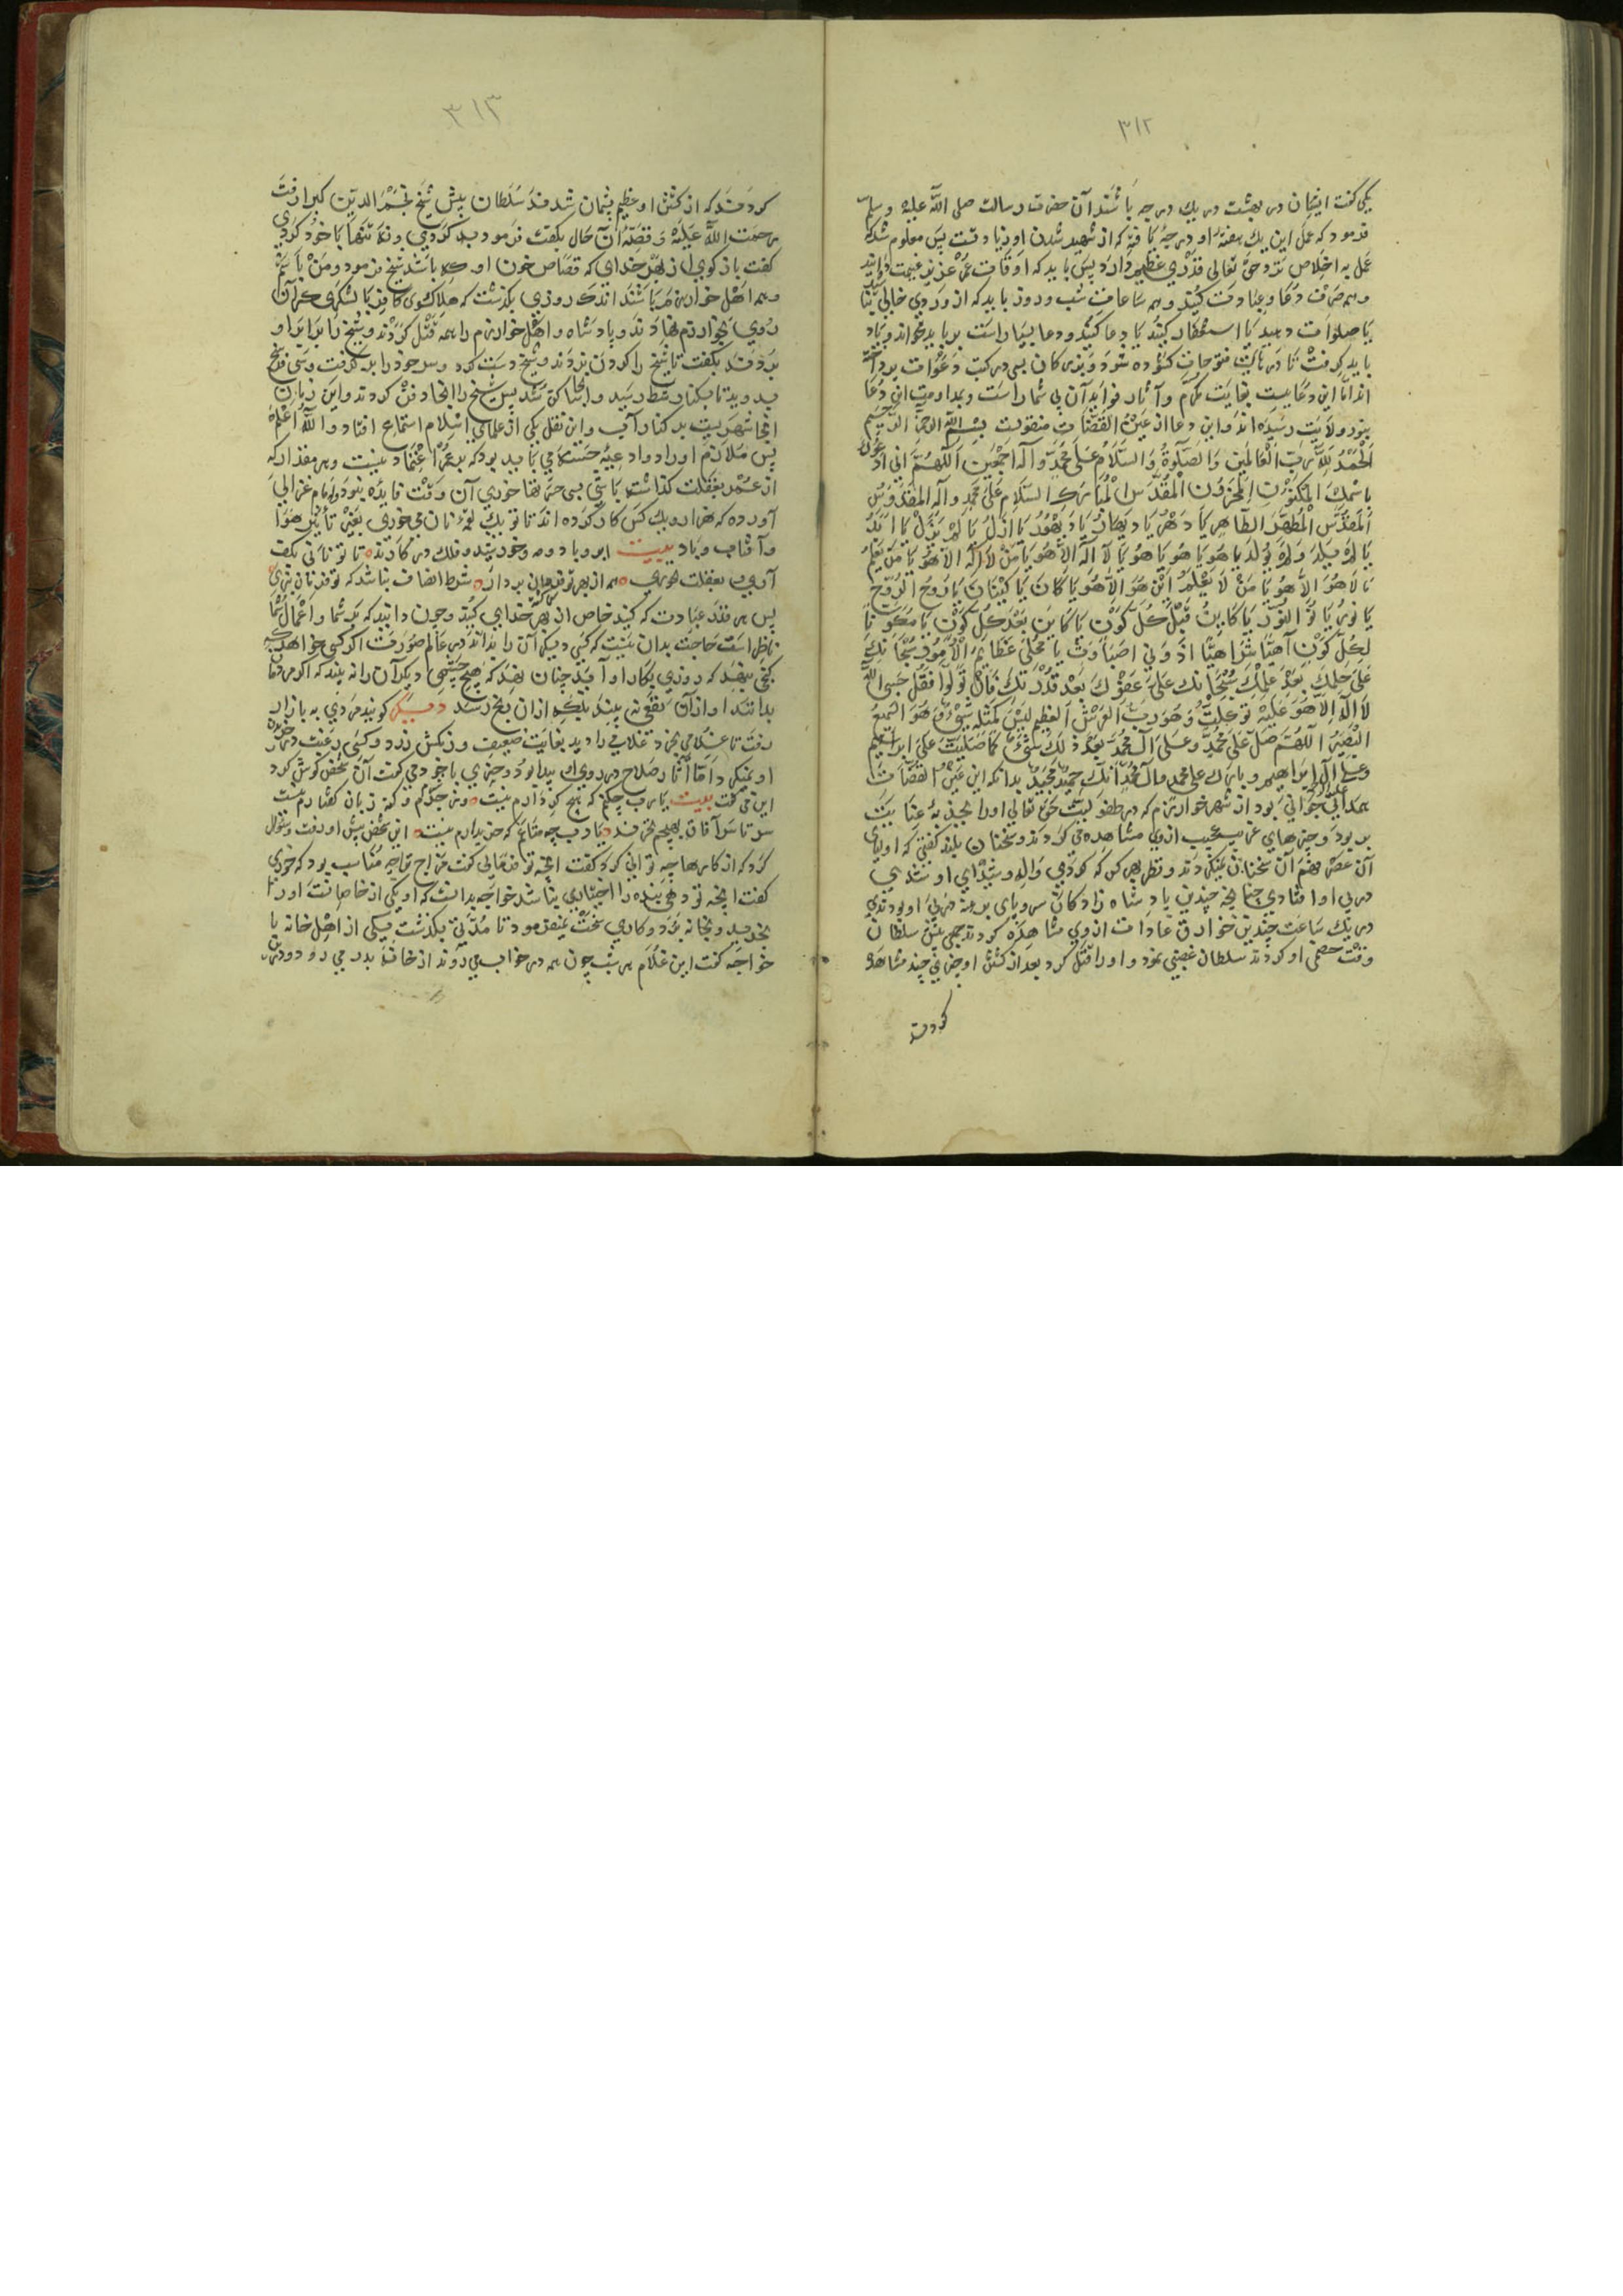 ٣١٢
یکی کفت ایشان در بهشت در یك درجه باشند آن حضرت رسالت صلی الله علیه وسلم
فرمود که عمل این یك هفته او درجه یافته که از شهید شدن او زیادتست پس معلوم شد که
عمل به اخلاص نزد حق تعالی قدری عظیم دارد پس باید که اوقات عمر عزیز غنیمت دانید
وهمه صرفت دعا و عبادت کنید وهمه ساعات شب و روز باید که از وردی خالی
یا صلوات دهید یا استغفار کنید یا دعا کنید ودعا بسیار است بر باید خواند و یاد
باید کرفت تا در باب فتوحات کشوده شود وبزرکان بسی در کتب دعوات پرداخته
اند اما این دعاییست بغایت مکرم وآثار فواید آن بی شمار است وبمداومت این دعا
بنور ولایت رسیده اند واین دعا از عین القضات منقولست بسم الله الرحمن الرحیم
الحمد لله رب العالمین والصلوة والسلام علی محمد وآله اجمعین اللهم انی ادعوك
باسمك المکنون المخزون المقدس المبارك السلام علی محمد وآله المقدوس
المقدس المطهر الطاهر یا دهر یا دیهار یا دیهور یا ازل یا لم یزل یا ابد
یا لم یلد ولم یولد یا هو یا هو یا هو یا لا اله الا هو یا من لا اله الا هو یا من یعلم
ما لا هو الا هو یا من لا یعلم این هو الا هو یا کان یا کینان یا روح الروح
یا نور یا نور النور یا کاین قبل کل کون یا کاین بعد کل کون یا مکون
لکل کون آهیا شراهیا ادونی اصباوث یا مجلی عظایم الامور سبحانك
علی حلمك بعد علمك سبحانك علی عفوك بعد قدرتك فان تولوا فقل حسبی الله
لا اله الا هو علیه توکلت وهو رب العرش العظیم لیس کمثله شیء وهو السمیع
البصیر اللهم صل علی محمد وعلی آل محمد بعدد ذلك کما صلیت علی ابراهیم
وعلی آل ابراهیم وبارك علی محمد وآل محمد انك حمید مجید بدانکه این عین القضات
همدانی جوانی بود از شهر خوارزم که در طفولیت حق تعالی اورا بجذبهٔ عنایت
بربود وچیزهای غریب عجیب ازوی مشاهده می کردند وسخنان بلند کفتی که اولیای
آن عصر فهم آن سخنان نمیکردند ونظر بهر کس که کردی واله وشیدای او شدی
در پی او افتادی چنانچه چندین پادشاه زادکان سر وپای برهنه در پی او بودندی
در یك ساعت چندین خوارق عادات ازوی مشاهده کردند جمعی پیش سلطان
وقت خصمی او کردند سلطان غضبی نمود واورا قتل کرد بعد از کشتن او چیزی چند مشاهده
کردند
٣١٣
کردند که از کشتن او عظیم پشیمان شدند سلطان پیش شیخ نجم الدین کبرا رفت
رحمت الله علیه وقصهٔ آن حال بکفت فرمود بد کردی ونه تنها با خود کردی
کفت باز کوی از بهر خدای که قصاص خون او که باشد شیخ فرمود ومن باشم
وهمه اهل خوارزم باشند اندك روزی بکذشت که هلاکوی کافر با لشکری کران
روی بخوارزم نهادند وپادشاه واهل خوارزم را همه قتل کردند وشیخ را برابر او
بردند بکفت تا شیخ را کردن بزدند وشیخ دست کرد وسر خود را بر کرفت وسی فرسخ
بدوید تا بکنار شط رسید وآنجا ساکن شد پس شیخ را آنجا دفن کردند واین زمان
آنجا شهریست بر کنار آب واین نقل یکی از علمای اسلام استماع افتاد والله اعلم
پس ملازم اوراد وادعیهٔ حسنه می باید بود که بر عمر اعتماد نیست وهر مقدار که
از عمر بغفلت کذاشته باشی بسی حسرتها خوری آن وقت فایده نبود وامام غزالی
آورده که هزار ویك کس کار کرده اند تا تو یك لقمه نان می خوری بغیر تأثیر هوا
وآفتاب وباد بیت ابر وباد ومه وخورشید وفلك در کارند ٥ تا تو نانی بکف
آری بغفلت نخوری ٥ همه از بهر تو فرمان بردار ٥ شرط انصاف نباشد که تو فرمان نبری
پس هر قدر عبادت که کنید خاص از بهر خدای کنید وچون دانید که بر شما واعمال شما
ناظر است حاجت بدان نیست که کسی دیکر آن را بداند در عالم صورت اکر کسی خواهد که
کنجی بنهد که روزی بکار او آید چنان نهد که هیچ چشمی دیکر آن را نه بیند که اکر مردمان
بدانند او از آن نفعی نه بیند بلکه از آن برنج رسد دیکر کویند مردی به بازار
رفت تا غلامی بخرد غلامی را دید بغایت ضعیف وزرد وکسی رغبت در خریدن
او نمیکرد اما آثار صلاح در روی او پیدا بود وچیزی با خود می کفت آن شخص کوش کرد
این می کفت بیت یا رب چکنم که هیچ کردارم نیست ٥ وز جرم وکنه زبان کفتارم نیست
سر تا سر آفاق بهیچم نخرند ٥ یا رب چه متاعم که خریدارم نیست ٥ این شخص پیش او رفت وسؤال
کرد که از کارها چه توانی کرد کفت آنچه تو فرمایی کفت مزاج تو با چه مناسب بود که خوری
کفت آنچه تو دهی بنده را اختیاری نباشد خواجه بدانست که او یکی از خاصانست اورا
بخرید وبخانه برد وکاری سخت نمیفرمود تا مدتی بکذشت یکی از اهل خانه با
خواجه کفت این غلام هر شب چون همه در خواب می روند از خانه بدر می رود ودر